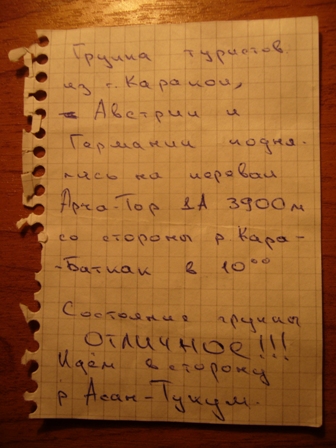 Группа туристов
из г. Каракол,
Австрии и
Германии подня-
лись на перевал
Арча-Тор 1А 3900м
со стороны р Кара-
-Баткак в 10⁰⁰
Состояние группы
ОТЛИЧНОЕ!!!
Идём в сторону
р Асан-Тукум.